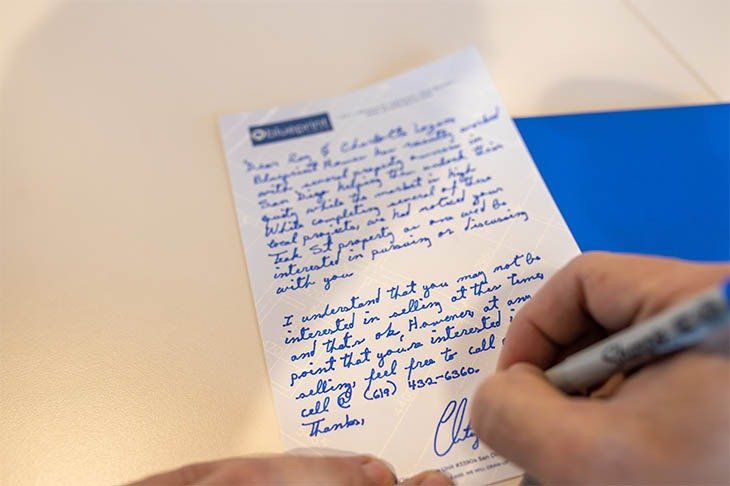 blueprint
Dear Roy & Charlotte Lazaro
Blueprint Homes has recently worked
with several property owners in
San Diego helping them unlock their
equity while the market is high
While completing several of these
local projects, we had noticed your
Teak St property as one we'd be
interested in pursuing or discussing
with you
I understand that you may not be
interested in selling at this time,
and that's ok. However, at any
point that you're interested
selling, feel free to call
cell @ (619) 432-6360.
Thanks,
San